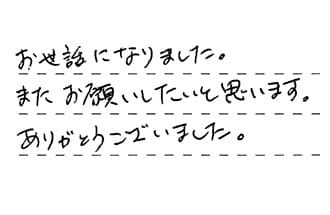 お世話になりました。
またお願いしたいと思います。
ありがとうございました。